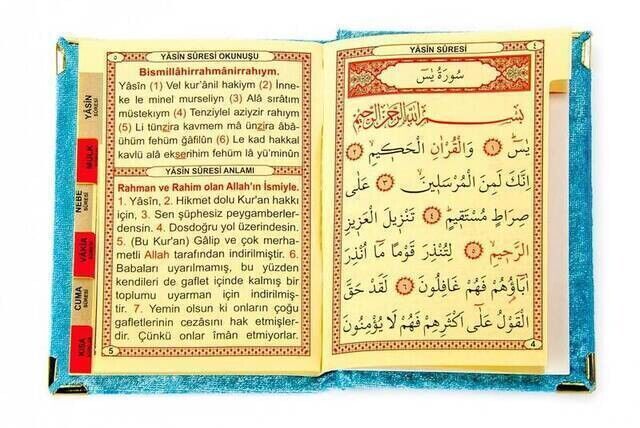 ٥
YÂSİN SÛRESİ OKUNUŞU
Bismillâhirrahmânirrahıym.
Yâsîn (1) Vel kur'ânil hakiym (2) İnne-
ke le minel murseliyn (3) Alâ sırâtım
müstekıym (4) Tenziylel aziyzir rahıym
(5) Li tünzira kavmem mâ ünzira âbâ-
ühüm fehüm ğâfilûn (6) Le kad hakkal
kavlü alâ ekserihim fehüm lâ yü'minûn
YÂSÎN SÛRESİ ANLAMI
Rahman ve Rahim olan Allah'ın İsmiyle.
1. Yâsîn, 2. Hikmet dolu Kur'an hakkı
için, 3. Sen şüphesiz peygamberler-
densin. 4. Dosdoğru yol üzerindesin.
5. (Bu Kur'an) Gâlip ve çok merha-
metli Allah tarafından indirilmiştir. 6.
Babaları uyarılmamış, bu yüzden
kendileri de gaflet içinde kalmış bir
toplumu uyarman için indirilmiş-
tir. 7. Yemin olsun ki onların çoğu
gafletlerinin cezasını hak etmişler-
dir. Çünkü onlar îmân etmiyorlar.
5
YÂSİN
SÛRESİ
MÜLK
NEBE
SÛRESİ
VÂKIA
CUMA
SÛRESİ
KISA
YÂSİN SÛRESİ
٤
سُورَةُ يٰسٓ
بِسْمِ اللّٰهِ الرَّحْمٰنِ الرَّحِيمِ
يٰسٓ ﴿١﴾ وَالْقُرْاٰنِ الْحَكِيمِ ﴿٢﴾
اِنَّكَ لَمِنَ الْمُرْسَلِينَ ﴿٣﴾ عَلٰى
صِرَاطٍ مُسْتَقِيمٍ ﴿٤﴾ تَنْزِيلَ الْعَزِيزِ
الرَّحِيمِ ﴿٥﴾ لِتُنْذِرَ قَوْمًا مَٓا اُنْذِرَ
اٰبَٓاؤُهُمْ فَهُمْ غَافِلُونَ ﴿٦﴾ لَقَدْ حَقَّ
الْقَوْلُ عَلٰٓى اَكْثَرِهِمْ فَهُمْ لَا يُؤْمِنُونَ
4